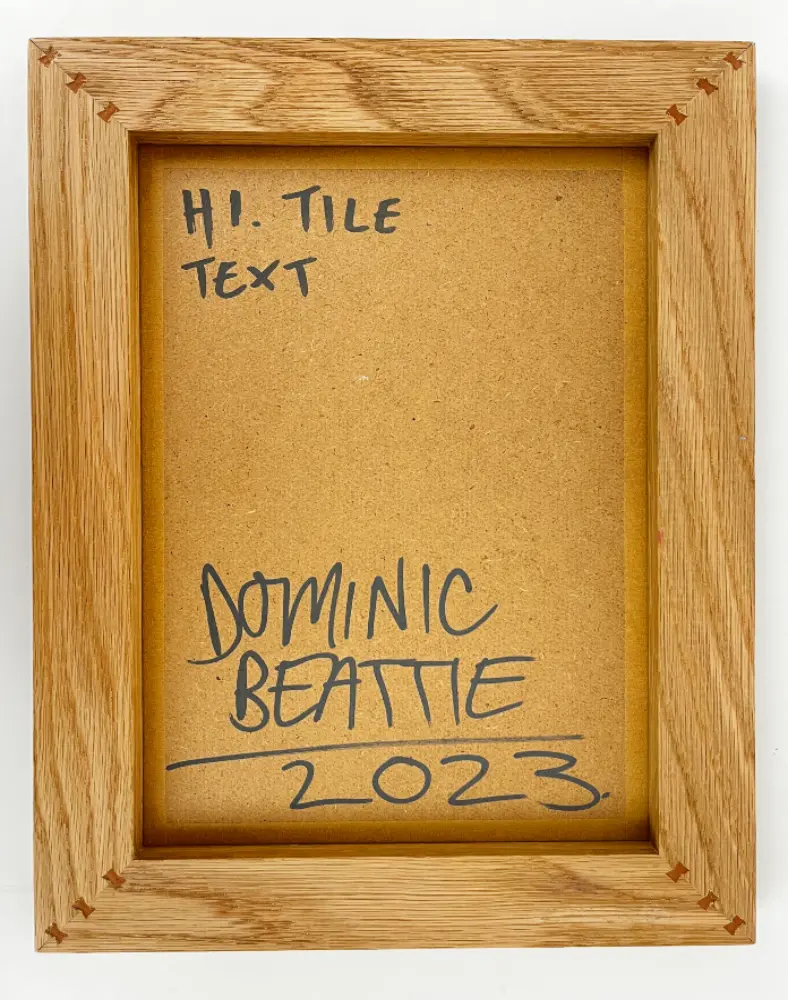 HI. TILE
TEXT
DOMINIC
BEATTIE
2023.